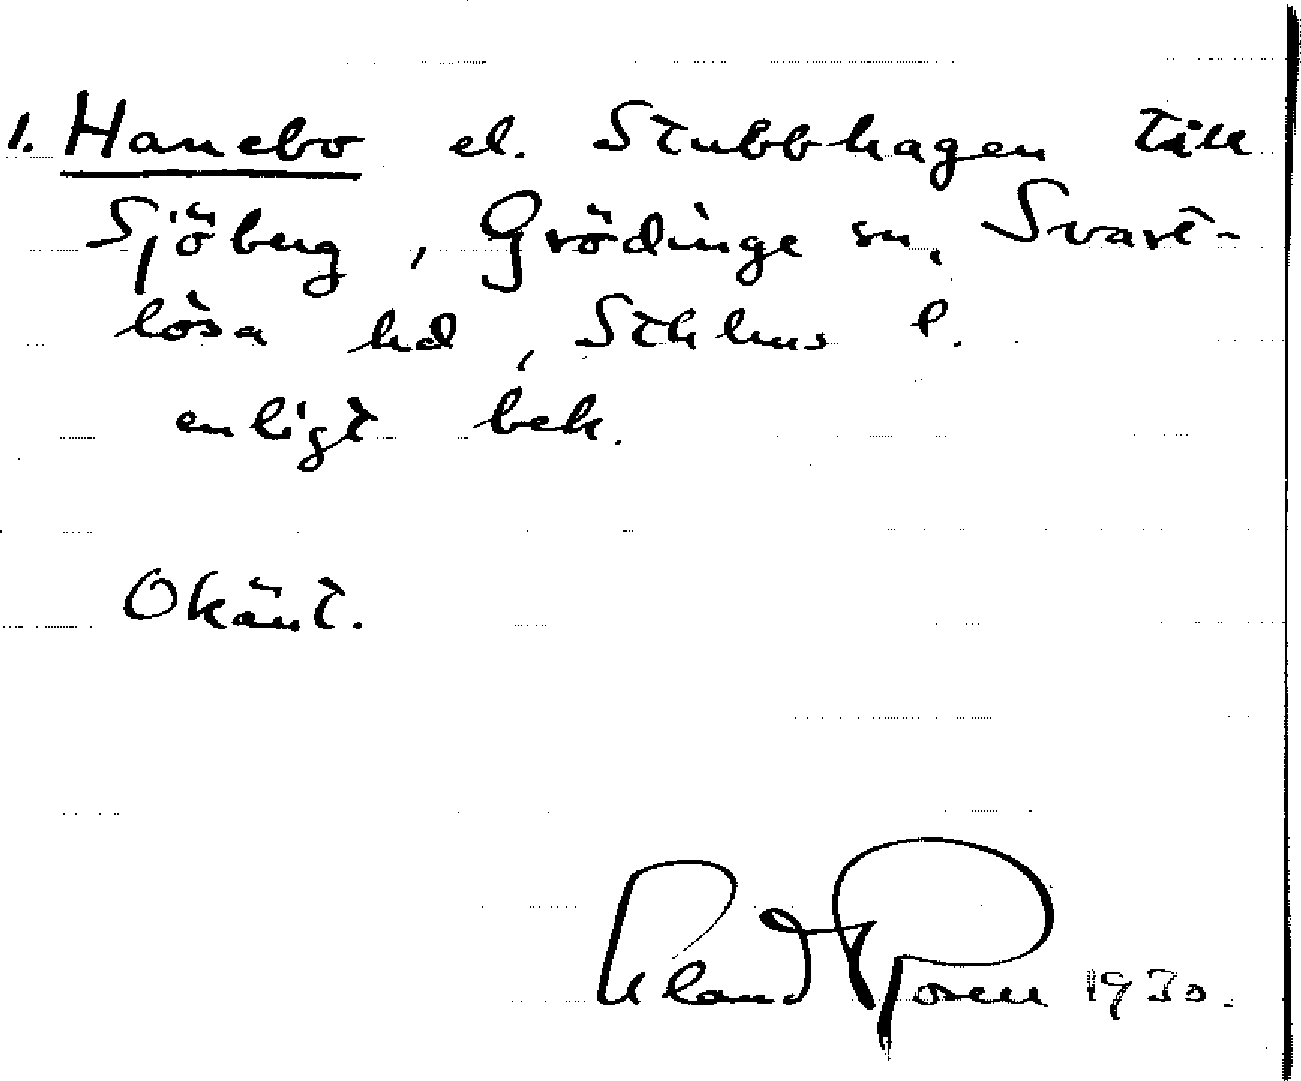 1. Hanebo el. Stubbhagen till
Sjöberg, Grödinge sn, Svart-
lösa hd, Sthlms l.
enligt bek.
Okänt.
Rosén 1930.